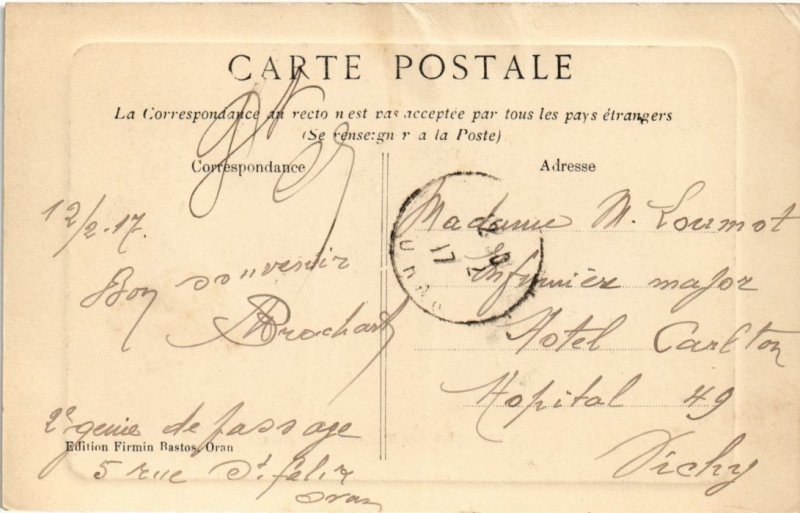 CARTE POSTALE
La Correspondance au recto n'est pas acceptée par tous les pays étrangers
(Se renseigner à la Poste)
Correspondance
12/2-17.
Bon souvenir
Brochard
2e génie de passage
Edition Firmin Bastos, Oran
5 rue St félix
Oran
Adresse
Madame M. Loumot
Infirmière major
Hotel Carlton
Hopital 49
Vichy